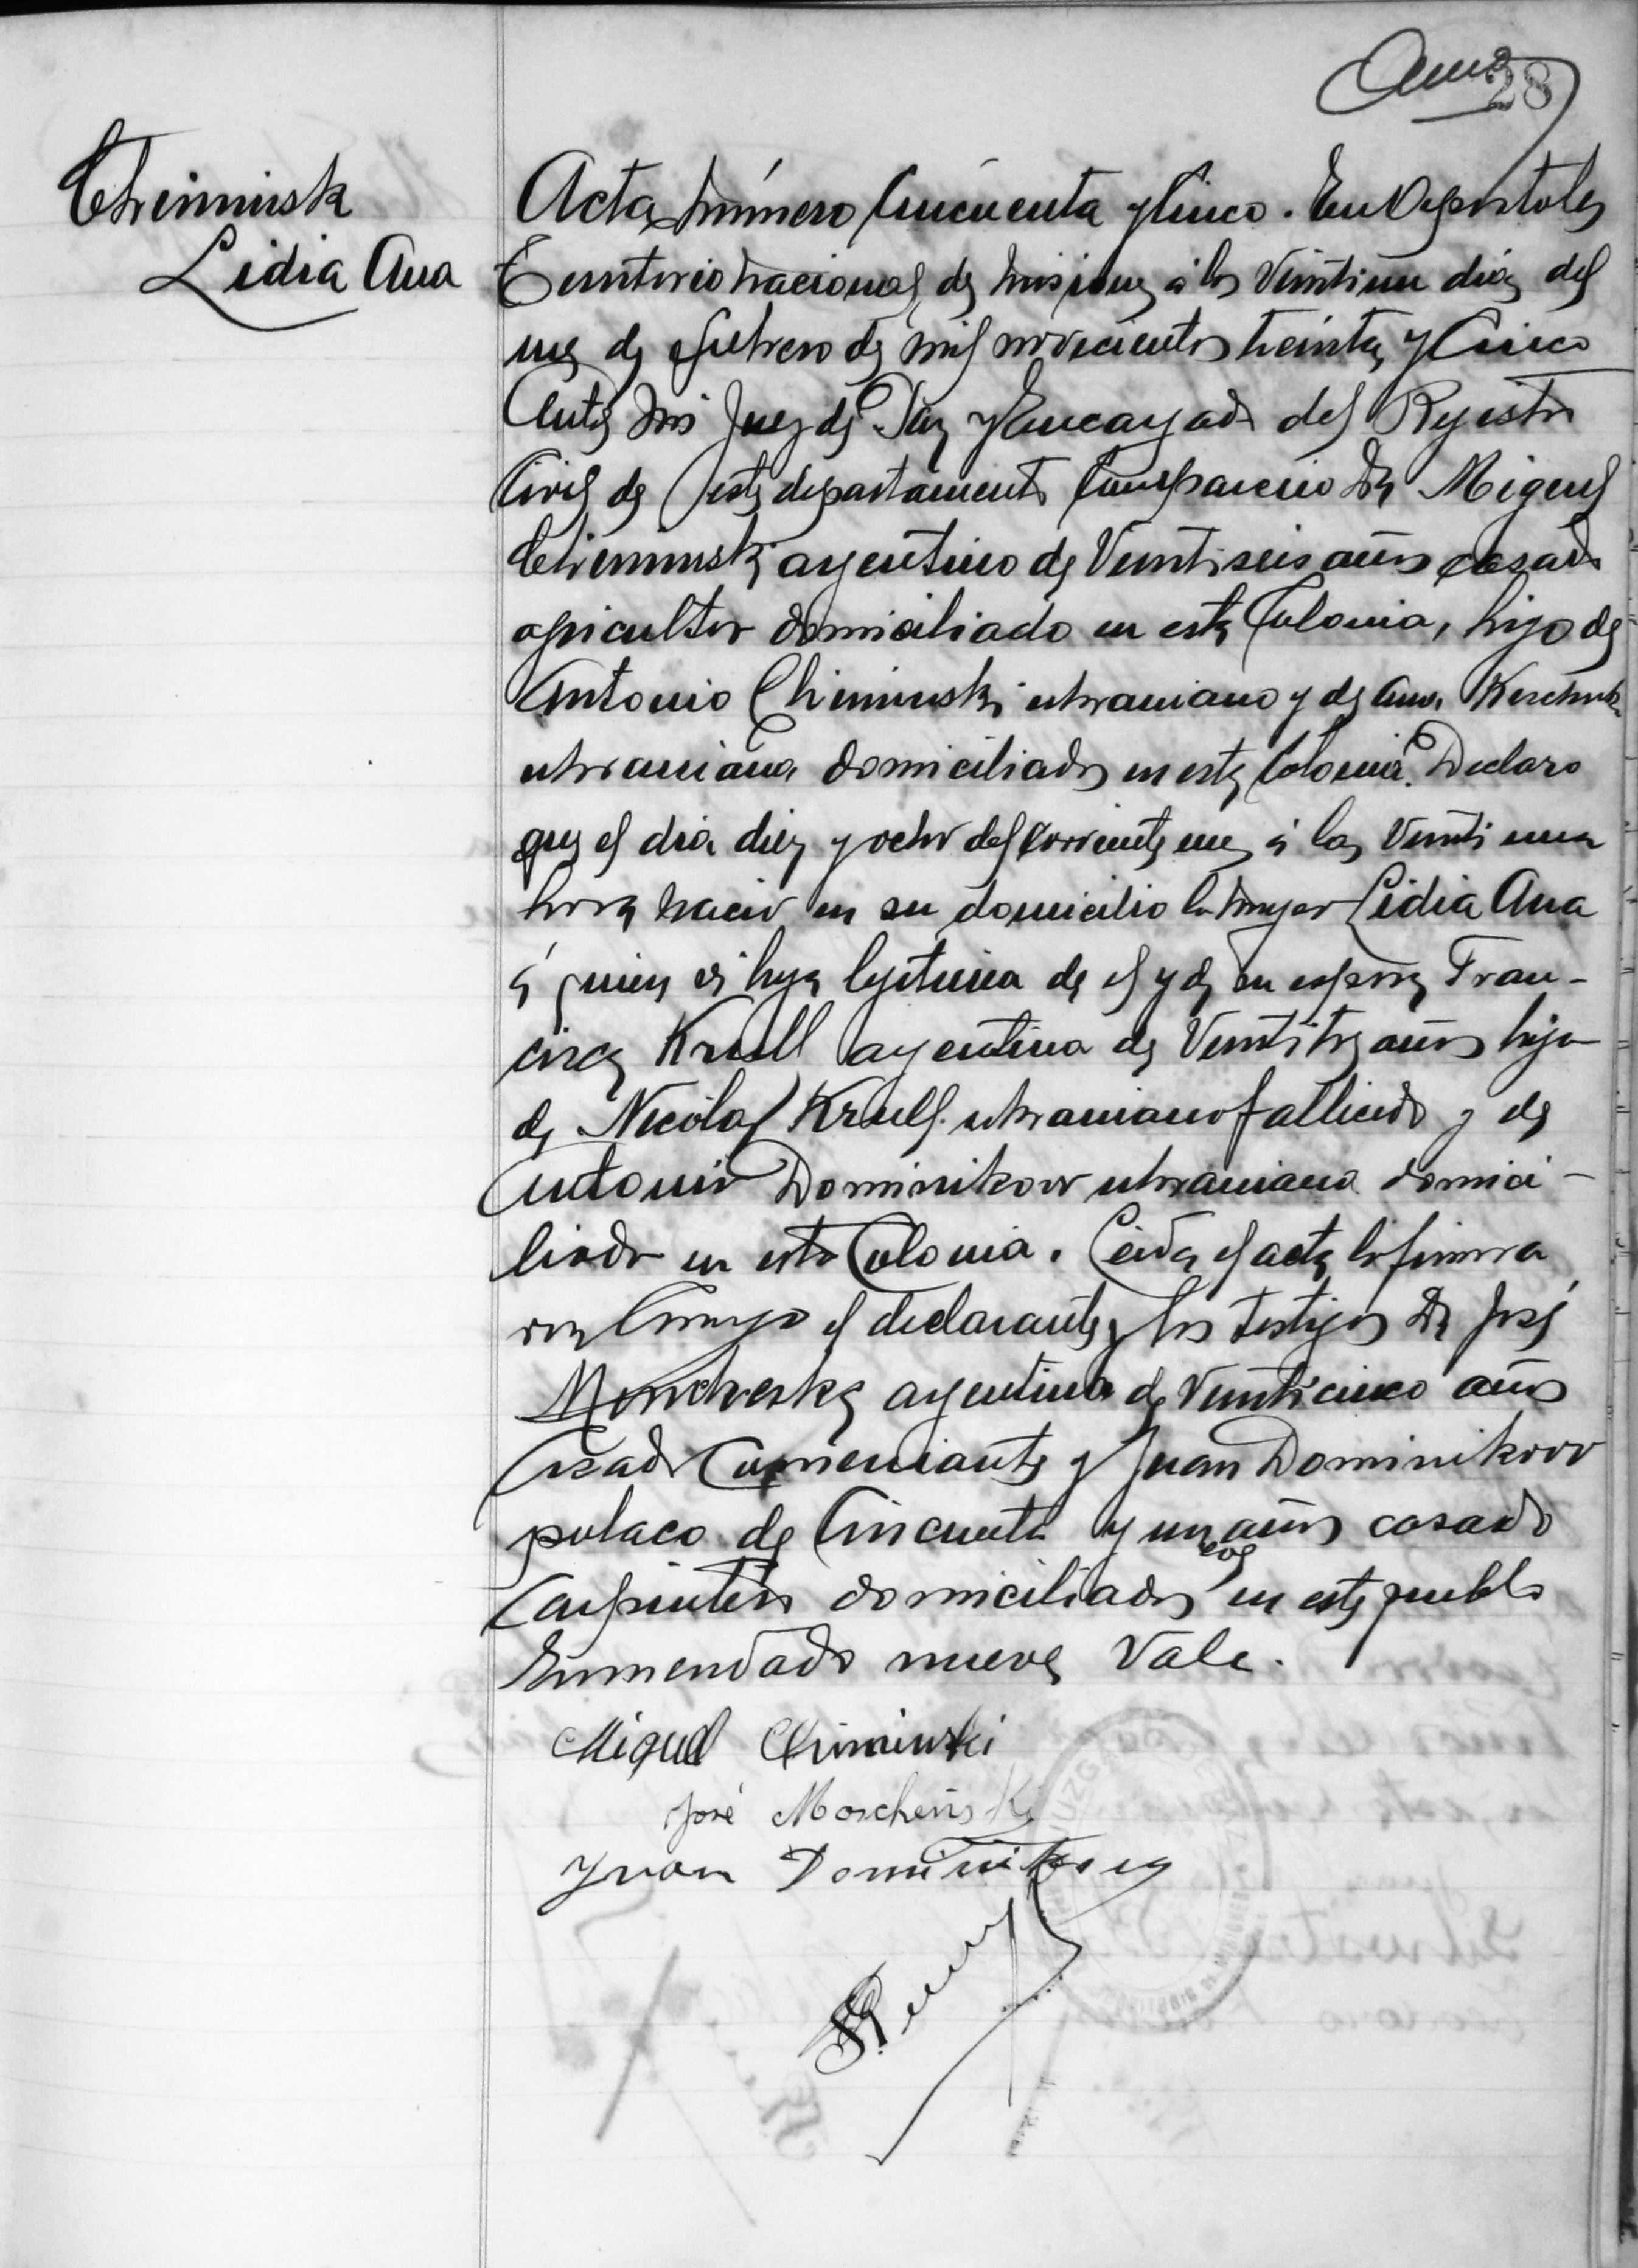 28
Chiminsk
Lidia Ana
Acta número Cincuenta y Cinco. En Apostoles
Territorio nacional de Misiones á los Veintiun dias del
mes de febrero de mil novecientos treinta y Cinco
Ante mi Juez de Paz y Encargado del Registro
Civil de este departamento Comparecio Dn Miguel
Chiminski argentino de Veintiseis años casado
agricultor domiciliado en esta Colonia, hijo de
Antonio Chiminski ukraniano y de Ana
ukraniana domiciliados en esta Colonia. Declaro
que el dia diez y ocho del corriente mes á las Veinti una
horas nacio en su domicilio la mujer Lidia Ana
á quien es hija legitima de el y de su esposa Fran-
cisca Krull argentina de Veintitres años hija
de Nicolas Krull ukraniano fallecido y de
Antonia Dominikow ukraniana domici-
liada en esta Colonia. Leida el acta la firma
ron Conmigo el declarante y los testigos Dn José
argentino de Veinticinco años
Casado Comerciante y Juan Dominikow
polaco de Cincuenta y un años casado
Carpintero domiciliados en este pueblo
Enmendado nueve Vale.
Miguel Chiminski
José Moscheñski
Juan Dominikow